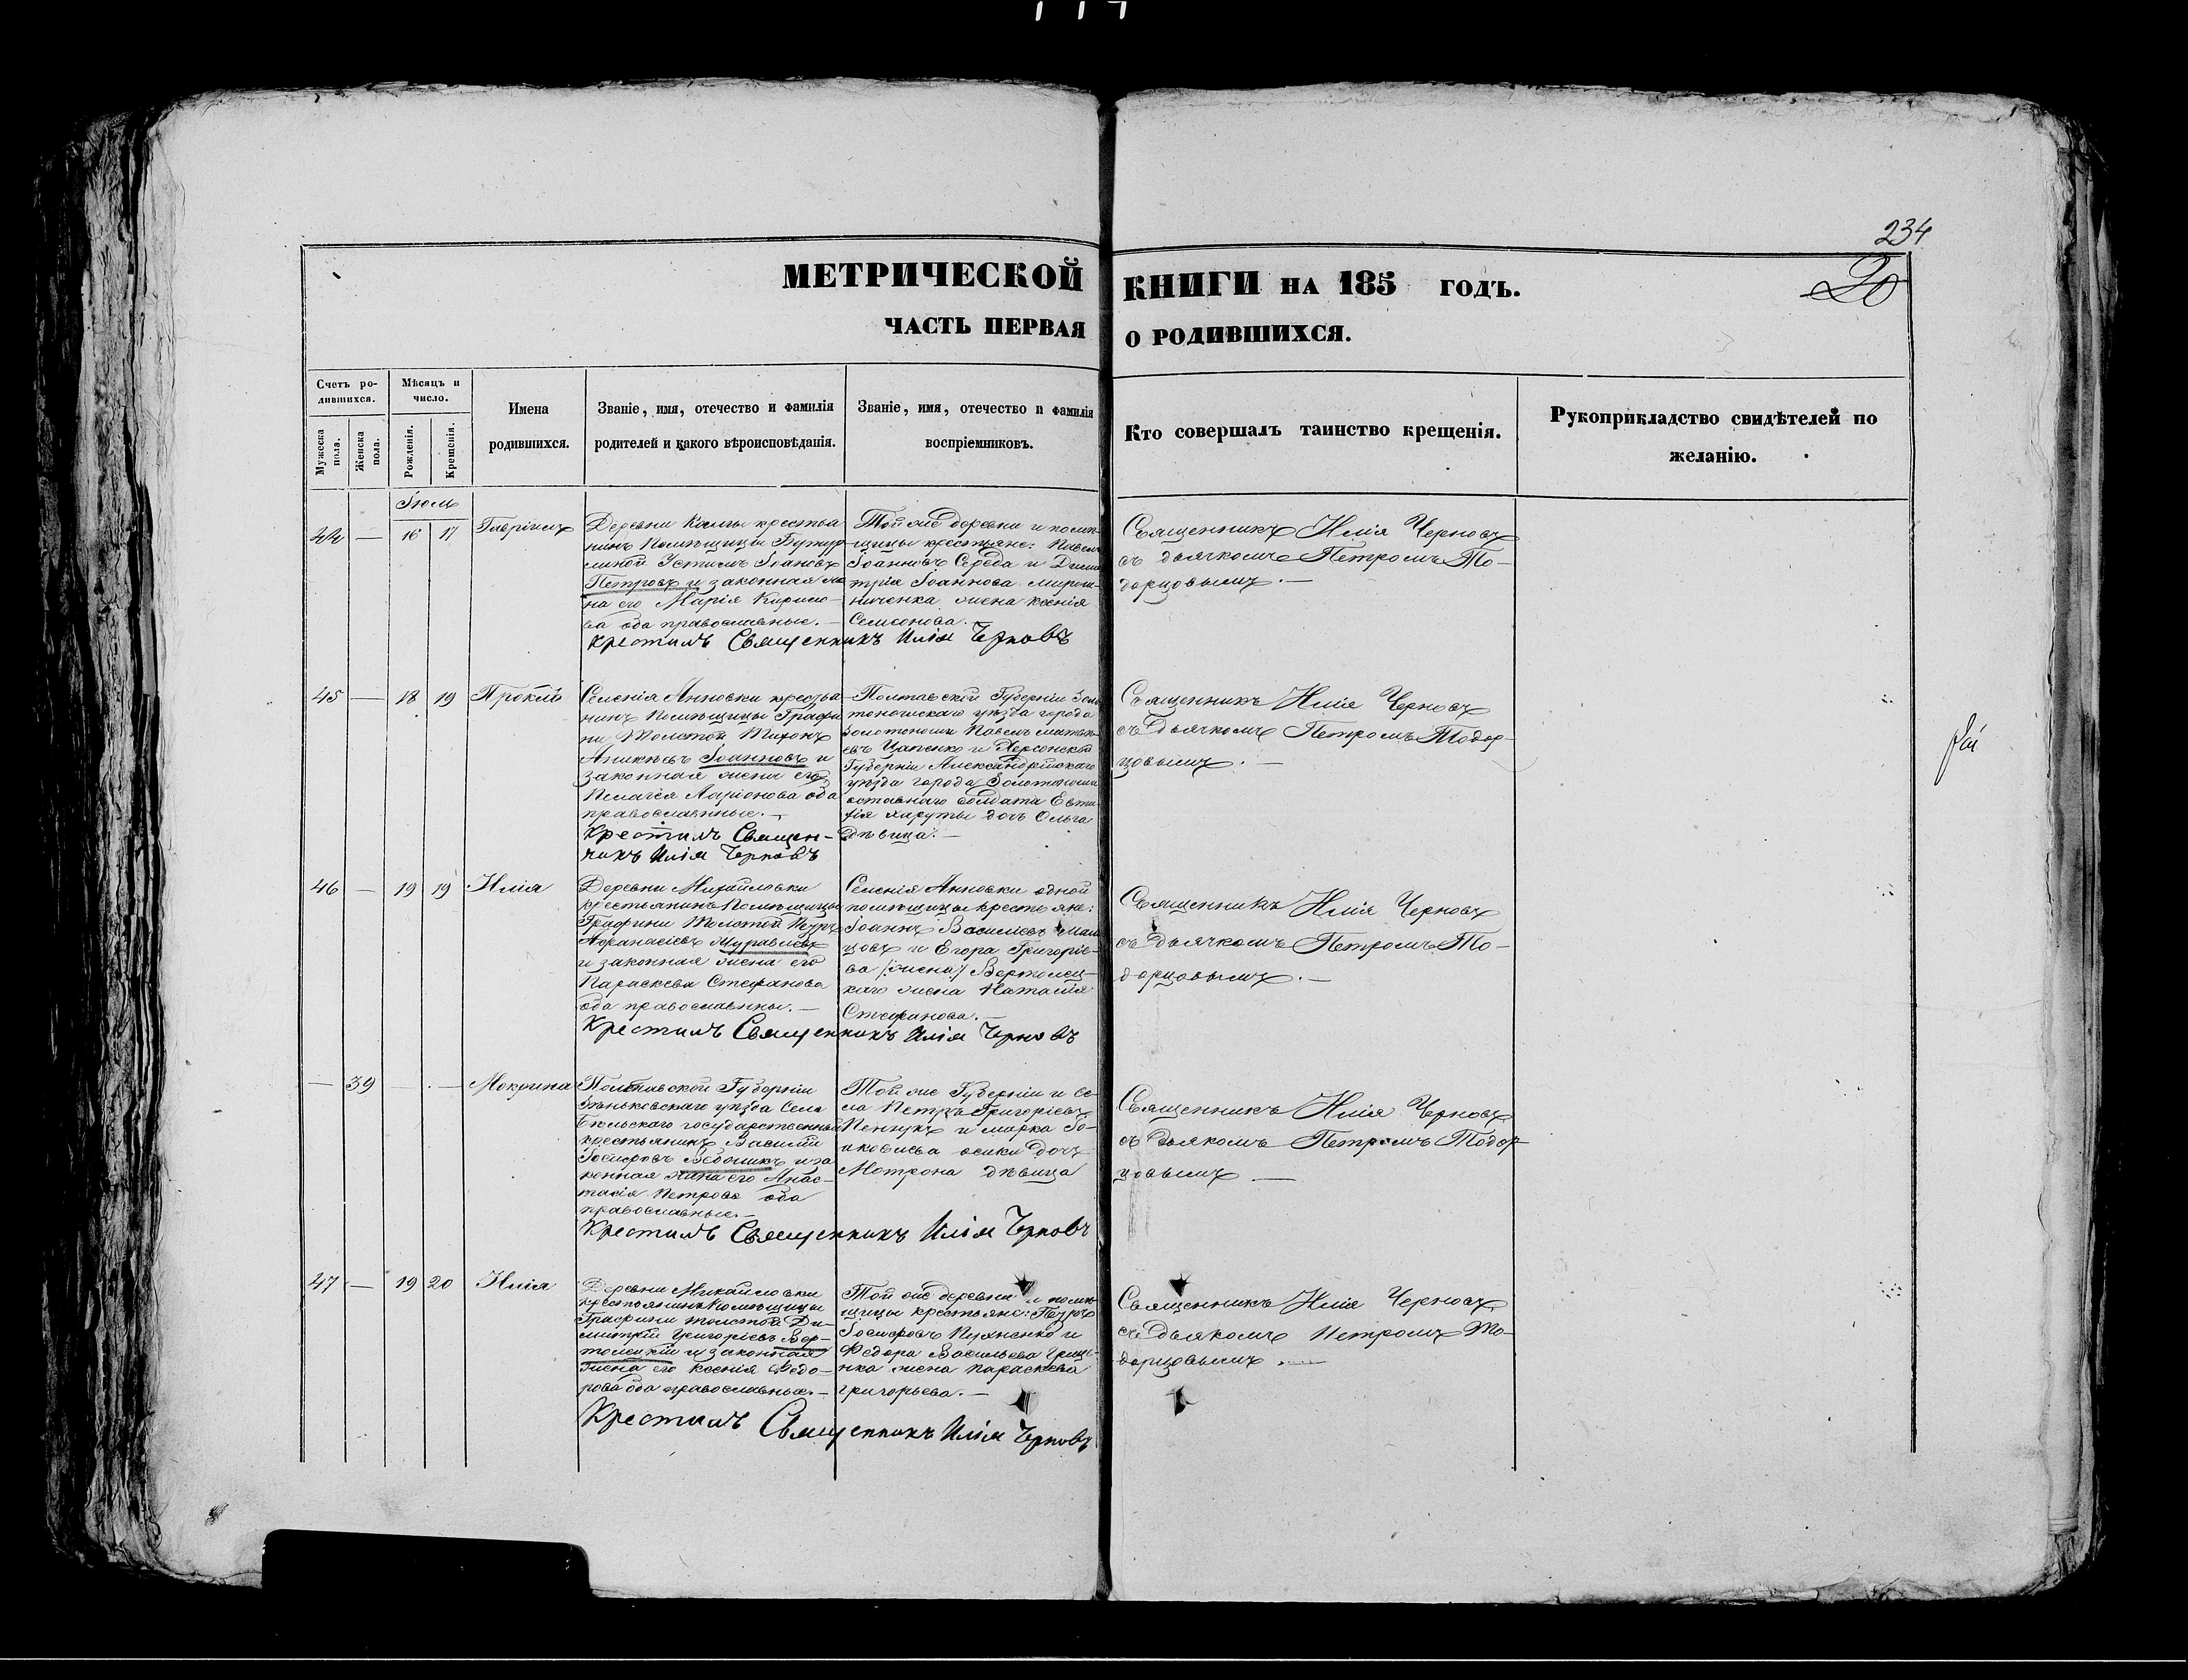 234
МЕТРИЧЕСКОЙ КНИГИ НА 185 ГОДЪ.
ЧАСТЬ ПЕРВАЯ О РОДИВШИХСЯ.
Счетъ ро-
дившихся.
Мужеска пола.
Женска пола.
Мѣсяцъ и
число.
Рожденія.
Крещенія.
Имена
родившихся.
Званіе, имя, отечество и фамилія
родителей и какого вѣроисповѣданія.
Званіе, имя, отечество и фамилія
воспріемниковъ.
Кто совершалъ таинство крещенія.
Рукоприкладство свидѣтелей по
желанію.
Іюль
44 — 16 17 Гавріилъ
Деревни крестья
нинъ Помѣщицы Бутур
линой Устимъ Іоановъ
Петровъ и законная же
на его Марія Кирило-
ва оба православные. —
Той же деревни и помѣ-
щицы крестьяне: Павелъ
Іоанновъ Середа и Дими
трія Іоаннова Мирош-
ниченка жена Ксенія
Самсонова.
Крестилъ Священникъ Илія Черновъ
Священникъ Илія Черновъ
съ дьячкомъ Петромъ То-
дорцовымъ. —
45 — 18 19 Прокłій
Селенія Анновки крестья
нинъ Помѣщицы Графи
ни Толстой Тихонъ
Аникѣевъ Іоанновъ и
законная жена его
Пелагія Ларіонова оба
православные. —
Крестилъ Священ-
никъ Илія Черновъ
Полтавской Губерніи Золо
тоношскаго уѣзда города
Золотоноши Павелъ
Цапенко и Херсонской
Губерніи Александрійскаго
уѣзда города Золотоноши
отставнаго солдата Евти
фія дочь Ольга
дѣвица. —
Священникъ Илія Черновъ
съ дьячкомъ Петромъ Тодор-
цовымъ. —
46 — 19 19 Илія
Деревни Михайловки
крестьянинъ Помѣщицы
Графини Толстой Петръ
Афанасіевъ Муравлевъ
и законная жена его
Параскева Стефанова
оба православны. —
Селенія Анновки одной
помѣщицы крестьяне:
Іоаннъ Василіевъ
цовъ и Егора Григоріе-
ва /жена/ Вертелец-
каго жена Наталія
Стефанова. —
Крестилъ Священникъ Илія Черновъ
Священникъ Илія Черновъ
съ дьячкомъ Петромъ То-
дорцовымъ. —
— 39 — · — Мокрина
Полтавской Губерніи
Зѣньковскаго уѣзда Села
государственный
крестьянинъ Василій
Іосифовъ и за
конная жена его Анас-
тасія Петрова оба
православные. —
Той же Губерніи и се-
ла Петръ Григоріевъ
и Марка
дочь
Матрона дѣвица
Крестилъ Священникъ Илія Черновъ
Священникъ Илія Черновъ
съ дьякомъ Петромъ Тодор
цовымъ —
47 — 19 20 Илія
Деревни Михайловки
крестьянинъ Помѣщицы
Графини Толстой Ди-
митрій Григоріевъ Вер-
телецкій и законная
жена его Ксенія Федо-
рова оба православные. —
Той же деревни и помѣ
щицы крестьяне: Петръ
Іосифовъ и
Федора Васильева Грище-
нка жена Параскева
Григорьева. —
Крестилъ Священникъ Илія Черновъ
Священникъ Илія Черновъ
съ дьякомъ Петромъ То-
дорцовымъ. —